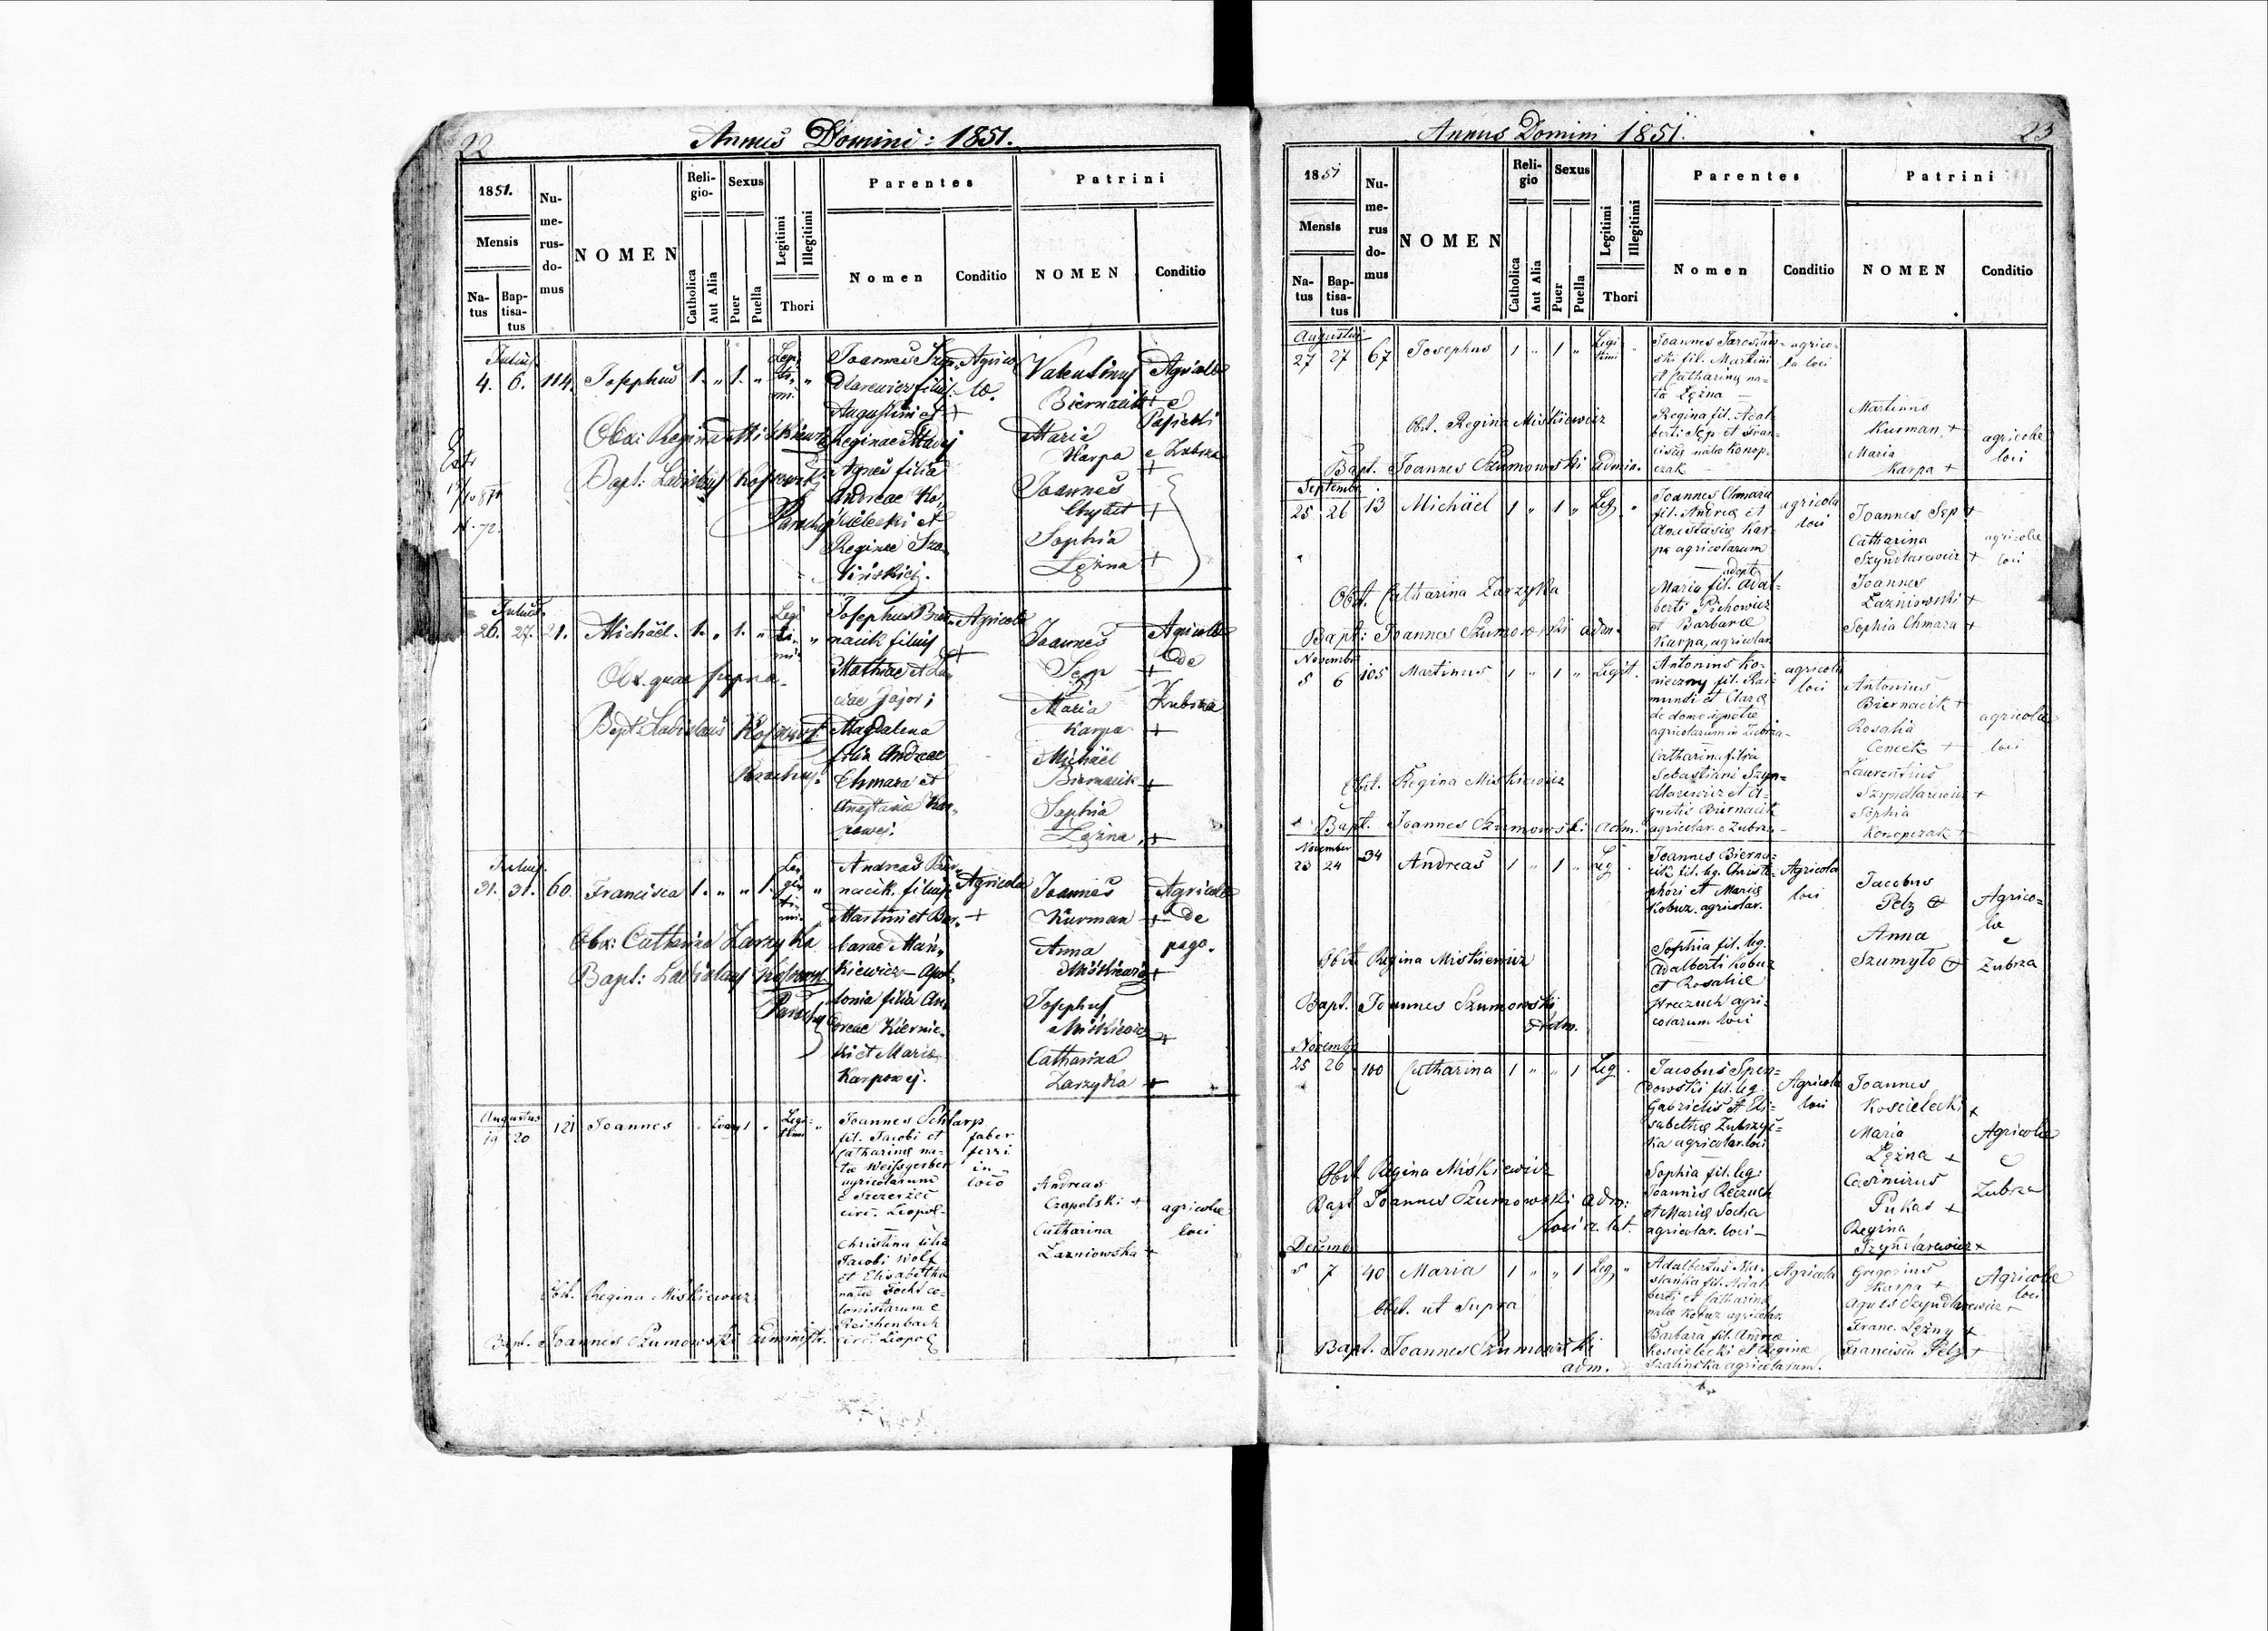 22
Annus Domini: 1851.
1851.
Mensis
Na-
tus
Bap-
tisa-
tus
Nu-
me-
rus-
do-
mus
NOMEN
Reli-
gio-
Catholica
Aut Alia
Sexus
Puer
Puella
Legitimi
Illegitimi
Thori
Parentes
Nomen
Conditio
Patrini
NOMEN
Conditio
Julius.
4. 6. 114. Josephus 1. „ 1. „
Legi-
ti-
mi.
Augustini et
Reginae
Agnes filia
Andreae Ko-
Reginae Sza-
Agrico-
lae.
Valentinus
Biernacik +
Maria
Karpa
Joannes
Chytet
Sophia
Lężna +
Agricolae
e
e Zubrza
Obx: Regina Miśkiewicz
Bapt: Ladislaus
Parochus
Julius.
26. 27. 21. Michäel. 1. „ 1. „
Legi-
ti-
mi.
Josephus Bier-
nacik filius
Mathiae et Lu-
ciae Jajor;
Magdalena
filia Andreae
Chmara et
Anastasiae Kar-
powej.
Agricola
Joannes
Sęp +
Maria
Karpa +
Michäel
Biernacik +
Sophia
Lężna +
Agricolae
de
Zubrza
Obx. quae supra.
Bapt: Ladislaus
Parochus.
Julius.
31. 31. 60. Francisca 1. „ „ 1.
Le-
gi-
ti-
mi.
Andreas Bier-
nacik filius
Martini et Bar-
barae Mań-
kiewicz - Apol-
lonia filia An-
dreae Kiernic-
ki et Maria
Karpowej.
Agricola
Joannes
Kurman +
Anna
Miśkiewicz +
Josephus
Miśkiewicz +
Catharina
Zarzyka +
Agricolae
de
pago.
Obx: Catharina Zarzyka
Bapt: Ladislaus
Parochus
Augustus
19 20 121 Joannes
Legi-
timi
Joannes Schlarp
fil. Jacobi et
Catharinę na-
tae Weißgerber
agricolarum
e Szczerzec
circ. Leopol-
Christina filia
Jacobi Wolf
et Elisabetha
natae Focht co-
lonistarum e
Reichenbach
circ. Leopol
faber
ferri
in
loco
Andreas
Czapelski +
Catharina
Lazniowska +
agricolae
loci
Obst. Regina Miśkiewicz
Bapt. Joannes Szumowski administr.
23
Annus Domini 1851.
1851
Mensis
Na-
tus
Bap-
tisa-
tus
Nu-
me-
rus
do-
mus
NOMEN
Reli-
gio
Catholica
Aut Alia
Sexus
Puer
Puella
Legitimi
Illegitimi
Thori
Parentes
Nomen
Conditio
Patrini
NOMEN
Conditio
Augustus
27 27 67 Josephus 1 „ 1 „
Legi-
timi
ski fil. Martini
et Catharinę na-
ta Lężna
Regina fil. Adal-
berti Sęp et Fran-
ciscę natae Konop-
czak
agrico-
la loci
Martinus
Kurman +
Maria
Karpa +
agricolae
loci
Obst. Regina Miśkiewicz
Bapt. Joannes Szumowski admin.
Septembr.
25 26 13 Michäel 1 „ 1 „ Leg. „
Joannes Chmara
fil. Andreę et
Anastasiae Kar-
pa agricolarum
adopt.
Maria fil. Adal-
berti Pichowicz
et Barbarae
Karpa, agricolar.
agricola
loci
Joannes Sęp +
Catharina
Szyndlarewicz +
Joannes
Lazniowski +
Sophia Chmara +
agricolae
loci
Obst. Catharina Zarzyka
Bapt: Joannes Szumowski adm.
Novembr.
5 6 105 Martinus 1 „ 1 „ Legit.
Antonius Ko-
nieczny fil. Rai-
mundi et Clarę
de domo ignotae
agricolarum in Zubrza-
Catharina filia
Sebastiani Szyn-
dlarewicz et A-
gnetis Biernacik
agricolar. e Zubrza -
agricola
loci
Antonius
Biernacik +
Rosalia
Cencek +
Laurentius
Szyndlarewicz +
Sophia
Konopczak +
agricolae
loci
Obst. Regina Miśkiewicz
Bapt. Joannes Szumowski adm.
November
23 24 34 Andreas 1 „ 1 „ Leg.
Joannes Bierna-
cik fil. leg. Christo-
phori et Marię
Kobuz. agricolar.
Sophia fil. leg.
Adalberti Kobuz
et Rosalie
Hreczuch agri-
colarum loci
Agricola
loci
Jacobus
Pelz +
Anna
Szumyło +
Agrico-
lae
e
Zubrza
Obst. Regina Miśkiewicz
Bapt. Joannes Szumowski
adm.
Novembr
25 26 100 Catharina 1 „ „ 1 Leg.
Jacobus Spen-
dowski fil. leg.
Gabrielis et Eli-
sabethae Zubrzyc-
ka agricolar. loci
Sophia fil. leg:
Joannis Reczuch
et Marię Socha
agricolar. loci -
Agricola
loci
Joannes
Koscielecki +
Maria
Lężna +
Casimirus
Pukas +
Regina
Szyndlarewicz +
Agricolae
e
Zubrza
Obst Regina Miśkiewicz
Bapt Joannes Szumowski adm:
loci r. lat.
Decembr
5 7 40 Maria 1 „ „ 1 Leg. „
Adalbertus Ma-
slanka fil. Adal-
berti et Catharina
natae Kobuz agricolar.
Barbara fil. Andreę
Koscielecki et Reginę
Szalinska agricolarum.
Agricola
Gregorius
Karpa +
Agnes Szyndlarewicz +
Franc. Lężny +
Francisca Pelz +
Agricolae
loci
Obst. ut supra
Bapt. Joannes Szumowski
adm.